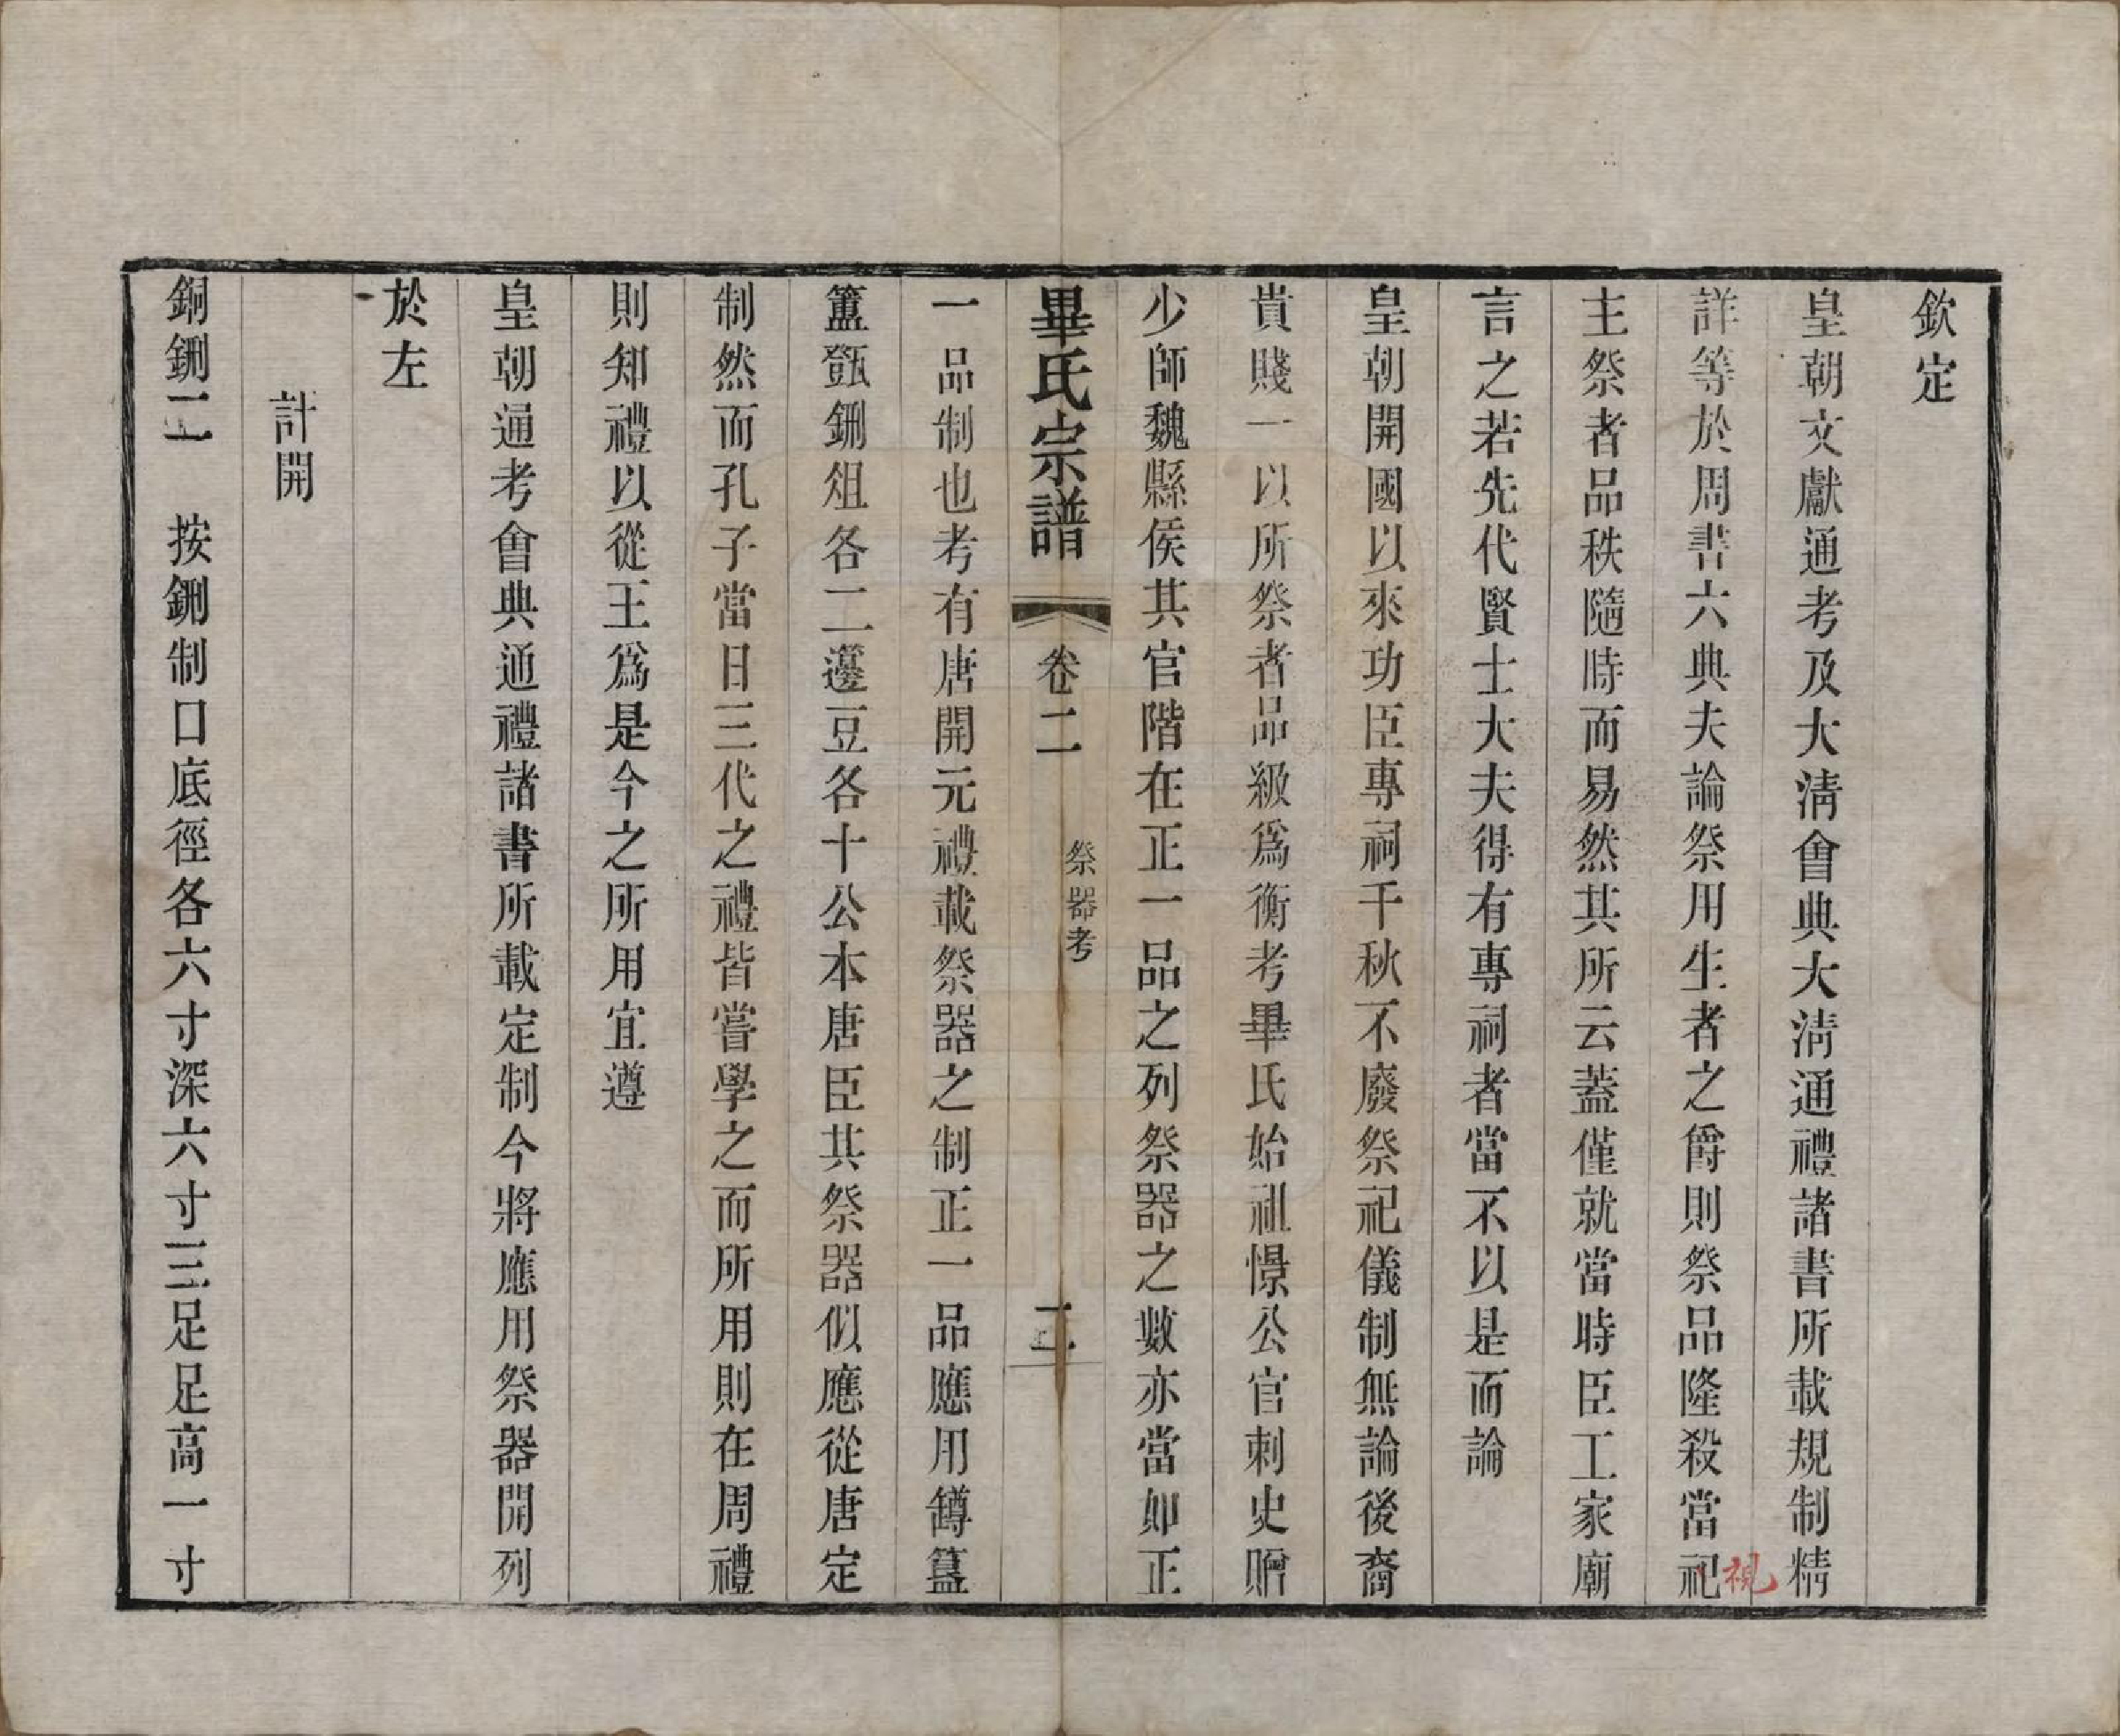 欽定
皇朝文獻通考及大清會典大清通禮諸書所載規制精
詳等於周書六典夫論祭用生者之爵則祭品隆殺當祀
視
主祭者品秩隨時而易然其所云蓋僅就當時臣工家廟
言之若先代賢士大夫得有專祠者當不以是而論
皇朝開國以來功臣專祠千秋不廢祭祀儀制無論後裔
貴賤一以所祭者品級為衡考畢氏始祖憬公官刺史贈
少師魏縣侯其官階在正一品之列祭器之數亦當如正
畢氏宗譜
卷二
祭器考
一品制也考有唐開元禮載祭器之制正一品應用罇簋
簠㽅鉶俎各二籩豆各十公本唐臣其祭器似應從唐定
制然而孔子當日三代之禮皆嘗學之而所用則在周禮
則知禮以從王爲是今之所用宜遵
皇朝通考會典通禮諸書所載定制今將應用祭器開列
於左
計開
銅鉶二　按鉶制口底徑各六寸深六寸三足足高一寸